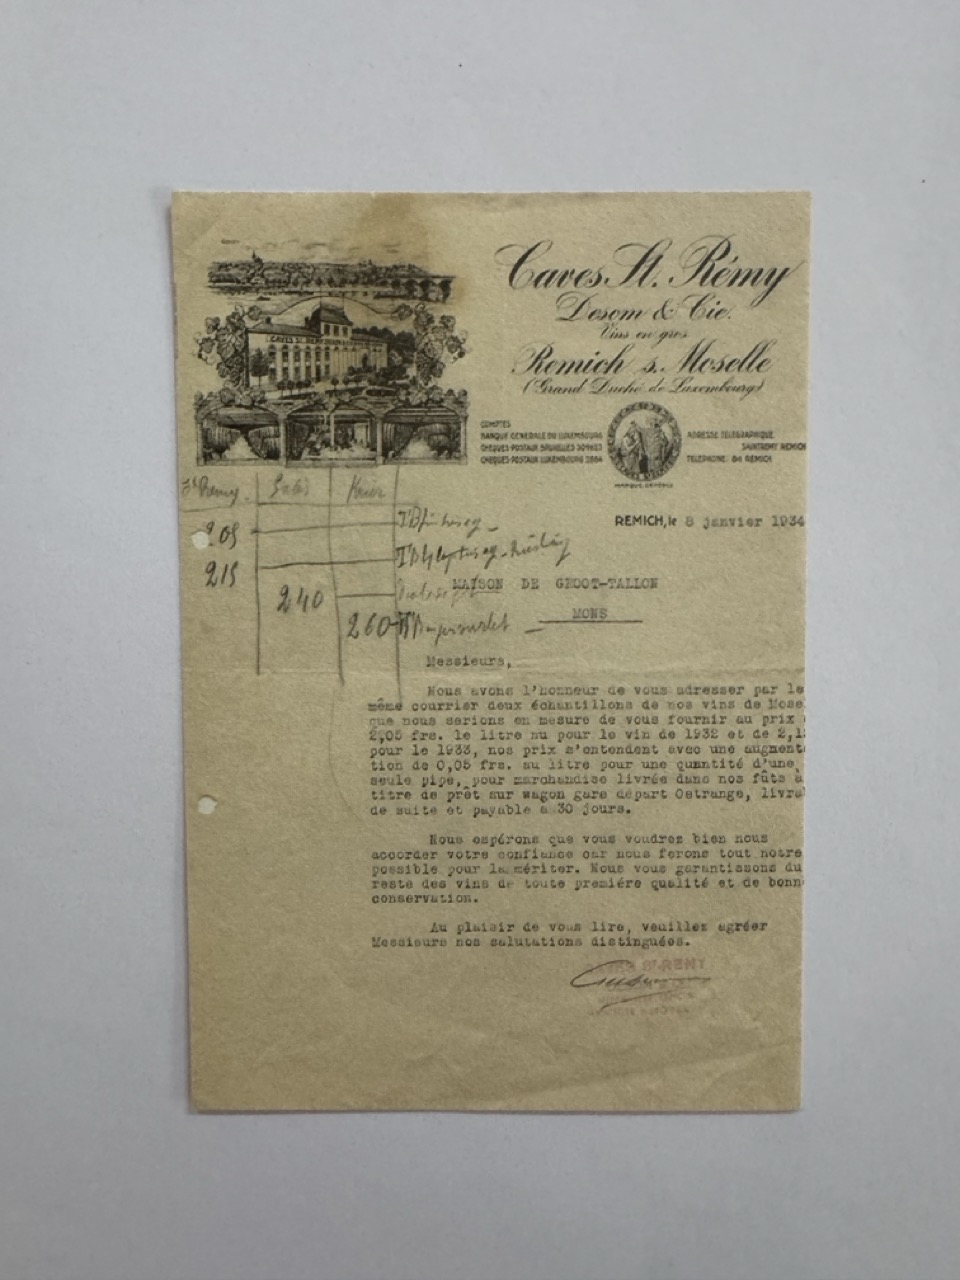 Caves St. Rémy
Desom & Cie.
Vins en gros
Remich s. Moselle
(Grand Duché de Luxembourg)
CAVES ST REMY
COMPTES
BANQUE GENERALE DU LUXEMBOURG
CHEQUES POSTAUX BRUXELLES
CHEQUES POSTAUX LUXEMBOURG
MARQUE DÉPOSÉE
ADRESSE TELEGRAPHIQUE
SAINTREMY REMICH
TELEPHONE: 84 REMICH
REMICH, le 8 janvier 1934
St Remy
205
215
240
260
MAISON DE GROOT-TALLON
MONS
Messieurs,
Nous avons l'honneur de vous adresser par le
même courrier deux échantillons de nos vins de Mose
que nous serions en mesure de vous fournir au prix
2,05 frs. le litre nu pour le vin de 1932 et de 2,1
pour le 1933, nos prix s'entendent avec une augment
tion de 0,05 frs. au litre pour une quantité d'une
seule pipe, pour marchandise livrée dans nos fûts à
titre de prêt sur wagon gare départ Oetrange, livra
de suite et payable à 30 jours.
Nous espérons que vous voudrez bien nous
accorder votre confiance car nous ferons tout notre
possible pour la mériter. Nous vous garantissons du
reste des vins de toute première qualité et de bonn
conservation.
Au plaisir de vous lire, veuillez agréer
Messieurs nos salutations distinguées.